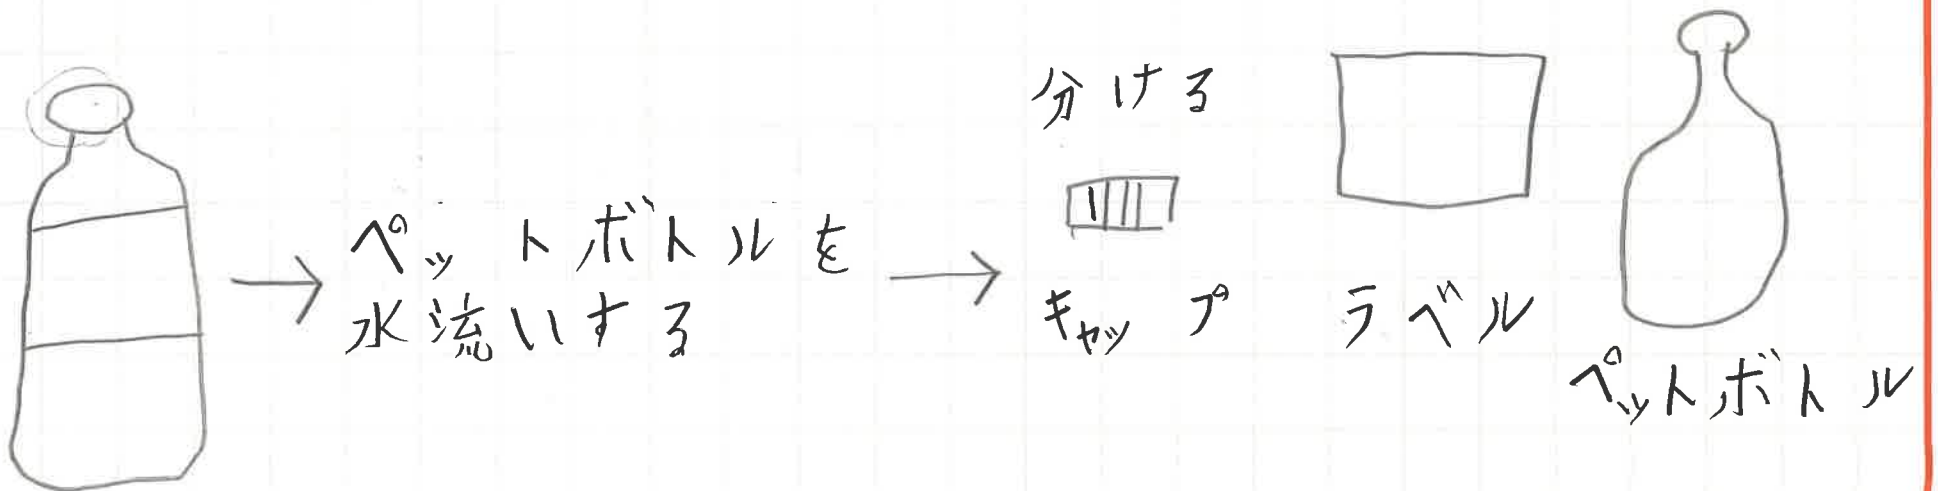 ペットボトルを
水流いする
分ける
キャップ
ラベル
ペットボトル